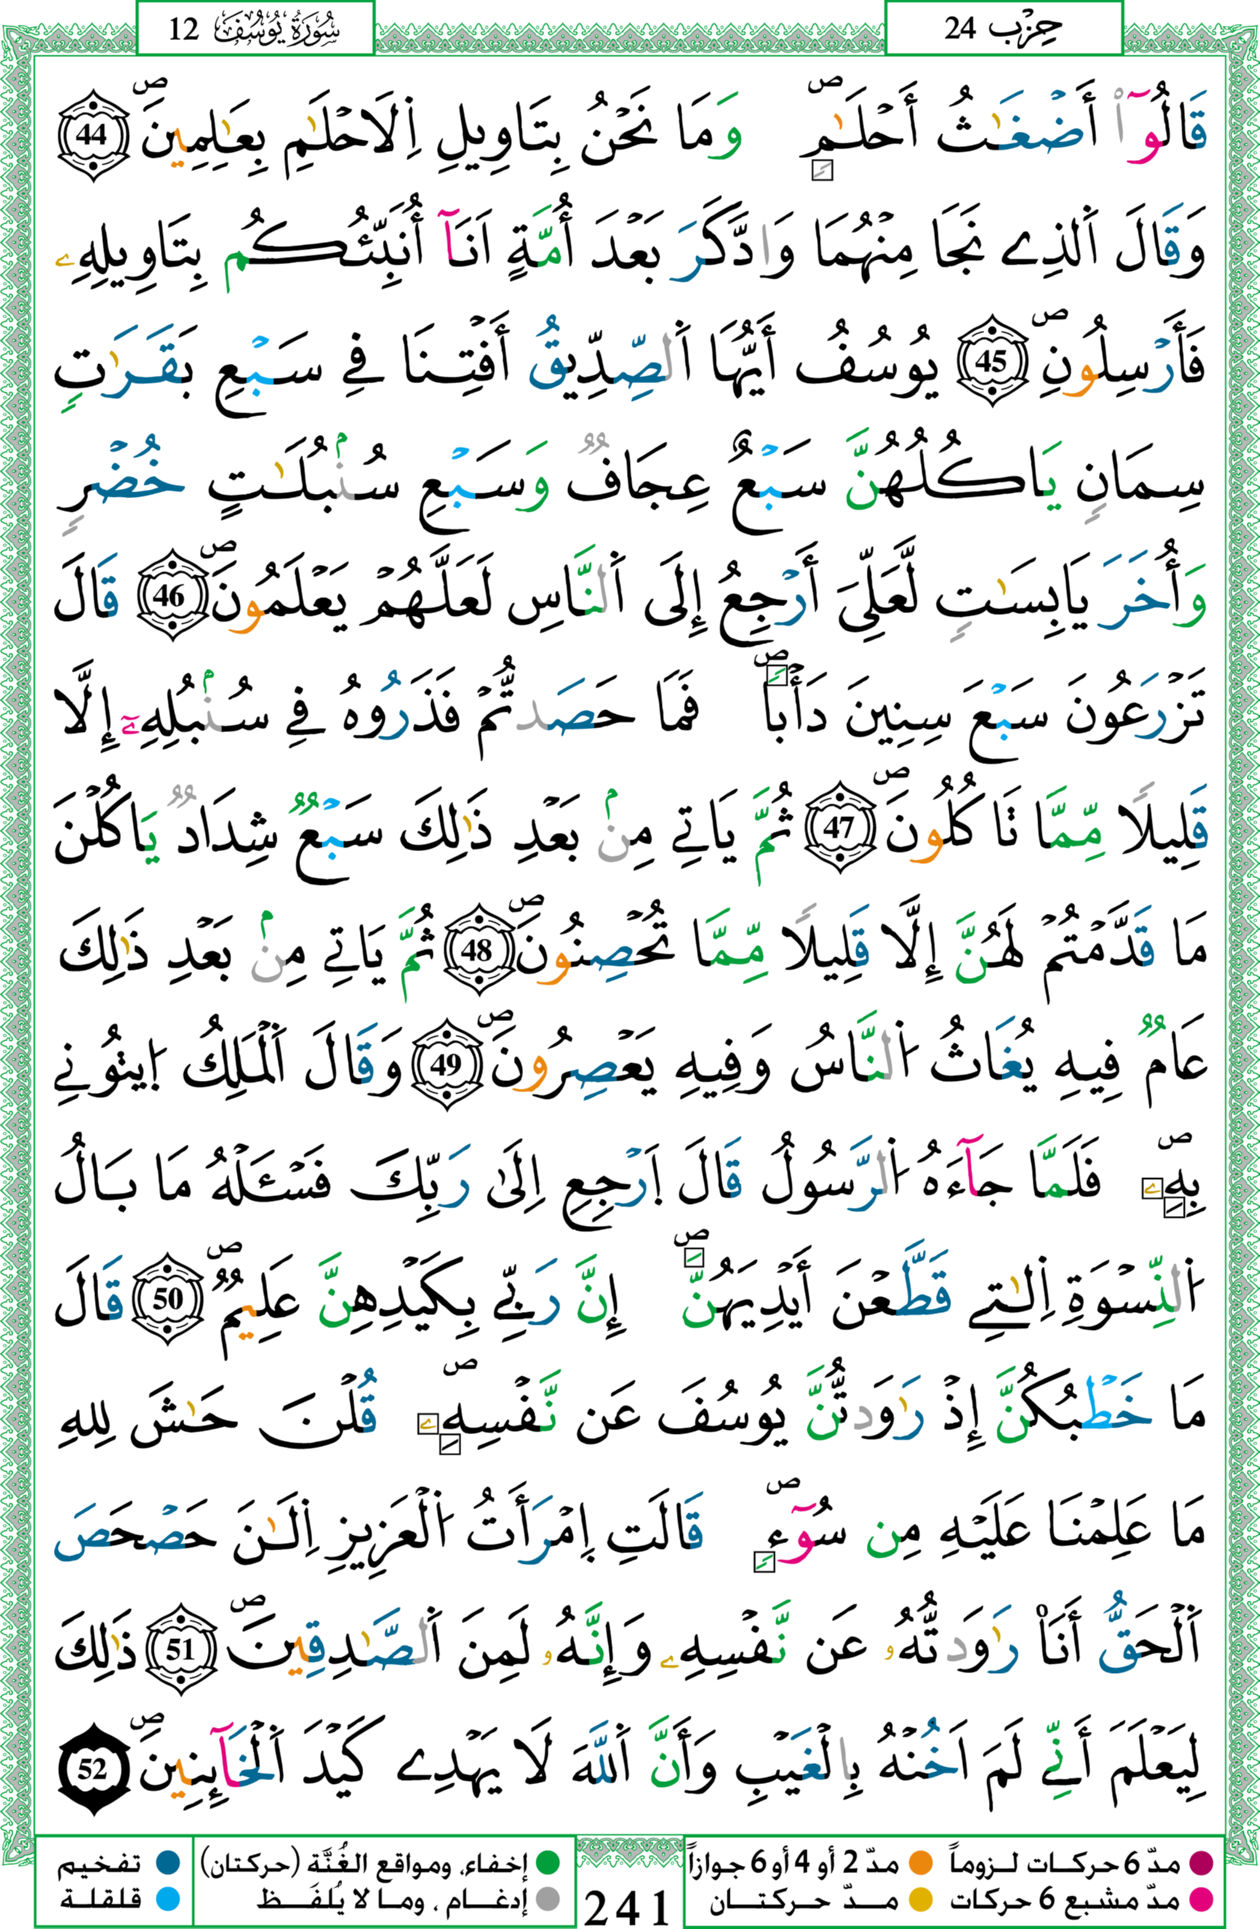 حزب 24
سُورَةُ يُوسُفَ 12
قَالُوٓاْ أَضْغَٰثُ أَحْلَٰمٖۖ وَمَا نَحْنُ بِتَاوِيلِ اِ۬لَاحْلَٰمِ بِعَٰلِمِينَۖ 44
وَقَالَ اَ۬لذِے نَجَا مِنْهُمَا وَادَّكَرَ بَعْدَ أُمَّةٍ اَنَآ أُنَبِّئُكُم بِتَاوِيلِهِۦ
فَأَرْسِلُونِۖ 45 يُوسُفُ أَيُّهَا اَ۬لصِّدِّيقُ أَفْتِنَا فِے سَبْعِ بَقَرَٰتٖ
سِمَانٖ يَاكُلُهُنَّ سَبْعٌ عِجَافٞ وَسَبْعِ سُنۢبُلَٰتٍ خُضْرٖ
وَأُخَرَ يَابِسَٰتٖ لَّعَلِّيَ أَرْجِعُ إِلَى اَ۬لنَّاسِ لَعَلَّهُمْ يَعْلَمُونَۖ 46 قَالَ
تَزْرَعُونَ سَبْعَ سِنِينَ دَأْباٗۖ فَمَا حَصَدتُّمْ فَذَرُوهُ فِے سُنۢبُلِهِۦٓ إِلَّا
قَلِيلاٗ مِّمَّا تَاكُلُونَۖ 47 ثُمَّ يَاتِے مِنۢ بَعْدِ ذَٰلِكَ سَبْعٞ شِدَادٞ يَاكُلْنَ
مَا قَدَّمْتُمْ لَهُنَّ إِلَّا قَلِيلاٗ مِّمَّا تُحْصِنُونَۖ 48 ثُمَّ يَاتِے مِنۢ بَعْدِ ذَٰلِكَ
عَامٞ فِيهِ يُغَاثُ اُ۬لنَّاسُ وَفِيهِ يَعْصِرُونَۖ 49 وَقَالَ اَ۬لْمَلِكُ اُ۪يتُونِے
بِهِۦۖ فَلَمَّا جَآءَهُ اُ۬لرَّسُولُ قَالَ اَ۪رْجِعِ اِلَىٰ رَبِّكَ فَسْـَٔلْهُ مَا بَالُ
اُ۬لنِّسْوَةِ اِ۬لٰتِے قَطَّعْنَ أَيْدِيَهُنَّۖ إِنَّ رَبِّے بِكَيْدِهِنَّ عَلِيمٞۖ 50 قَالَ
مَا خَطْبُكُنَّ إِذْ رَٰوَدتُّنَّ يُوسُفَ عَن نَّفْسِهِۦۖ قُلْنَ حَٰشَ لِلهِ
مَا عَلِمْنَا عَلَيْهِ مِن سُوٓءٖۖ قَالَتِ اِ۪مْرَأَتُ اُ۬لْعَزِيزِ اِ۬لَٰنَ حَصْحَصَ
اَ۬لْحَقُّ أَنَا۠ رَٰوَدتُّهُۥ عَن نَّفْسِهِۦ وَإِنَّهُۥ لَمِنَ اَ۬لصَّٰدِقِينَۖ 51 ذَٰلِكَ
لِيَعْلَمَ أَنِّے لَمَ اَخُنْهُ بِالْغَيْبِ وَأَنَّ اَ۬للَّهَ لَا يَهْدِے كَيْدَ اَ۬لْخَآئِنِينَۖ 52
مدّ 6 حركات لـزوماً
مدّ 2 أو 4 أو 6 جوازاً
إخفاء، ومواقع الغُنَّة (حركتان)
تفخيم
مدّ مشبع 6 حركات
مــدّ حـركتــان
إدغـام ، ومـا لا يُلفَـظ
قلقلة
241